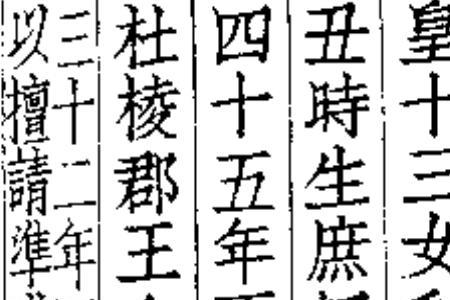 皇十三女
丑時生庶
四十五年
杜棱郡王
三十二年
以擅請準